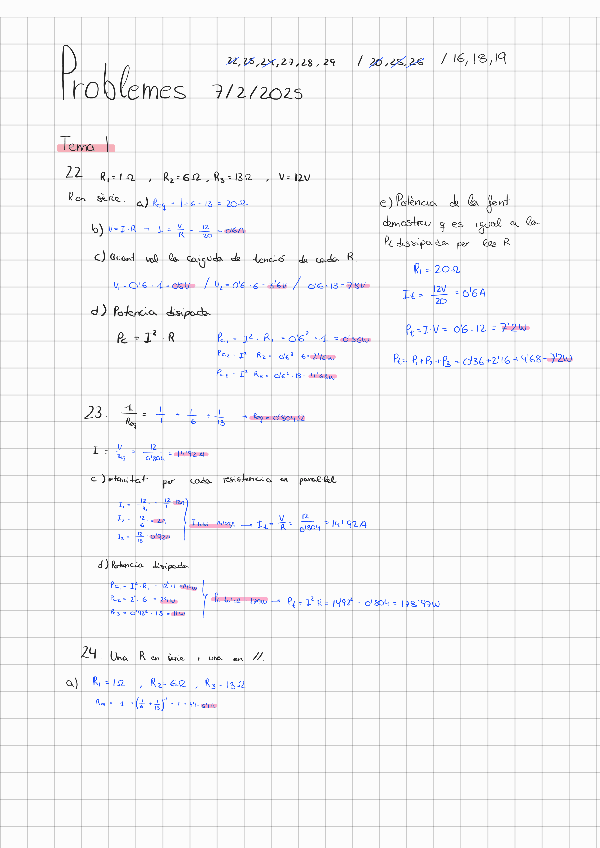 22,23,24,27,28,29 / 20,25,26 / 16,18,19
Problemes 7/2/2025
Tema 1
22 R₁=1Ω , R₂=6Ω, R₃=13Ω , V=12V
R en sèrie. a) Req = 1+6+13 = 20Ω
b) V=I·R → I = V/R = 12/20 = 0'6A
c) Quant val la caiguda de tenció de cada R
V₁=0'6·1=0'6V / V₂=0'6·6=3'6V / 0'6·13=7'8V
d) Potència disipada
P = I²·R
= I²·R₁ = 0'6²·1 = 0'36W
I² R₂ = 0'6²·6 = 2'16W
I² R₃ = 0'6²·13 = 4'68W
e) Potència de la font
demostreu q es igual a la
dissipada per les R
R = 20Ω
It = 12V/20 = 0'6A
Pt = I·V = 0'6·12 = 7'2W
Pt = P₁+P₂+P₃ = 0'36+2'16+4'68 = 7'2W
23. 1/Req = 1/1 + 1/6 + 1/13 → Req = 0'804Ω
I = V/Req = 12/0'804 = 14'92A
c) intensitat per cada resistència en paral·lel
I₁ = 12/R₁ = 12/1 = 12A
I₂ = 12/6 = 2A
I₃ = 12/13 = 0'92A
→ It = V/R = 12/0'804 = 14'92A
d) Potencia disipada
= I₁²·R₁ = 12²·1
= 2²·6 = 24W
= 0'92²·13 = 11W
→ Pt = I²·R = 14'92²·0'804 = 178'97W
24 Una R en sèrie i una en //.
a) R₁=1Ω , R₂=6Ω , R₃=13Ω
Req = 1 + (1/6 + 1/13)⁻¹ =